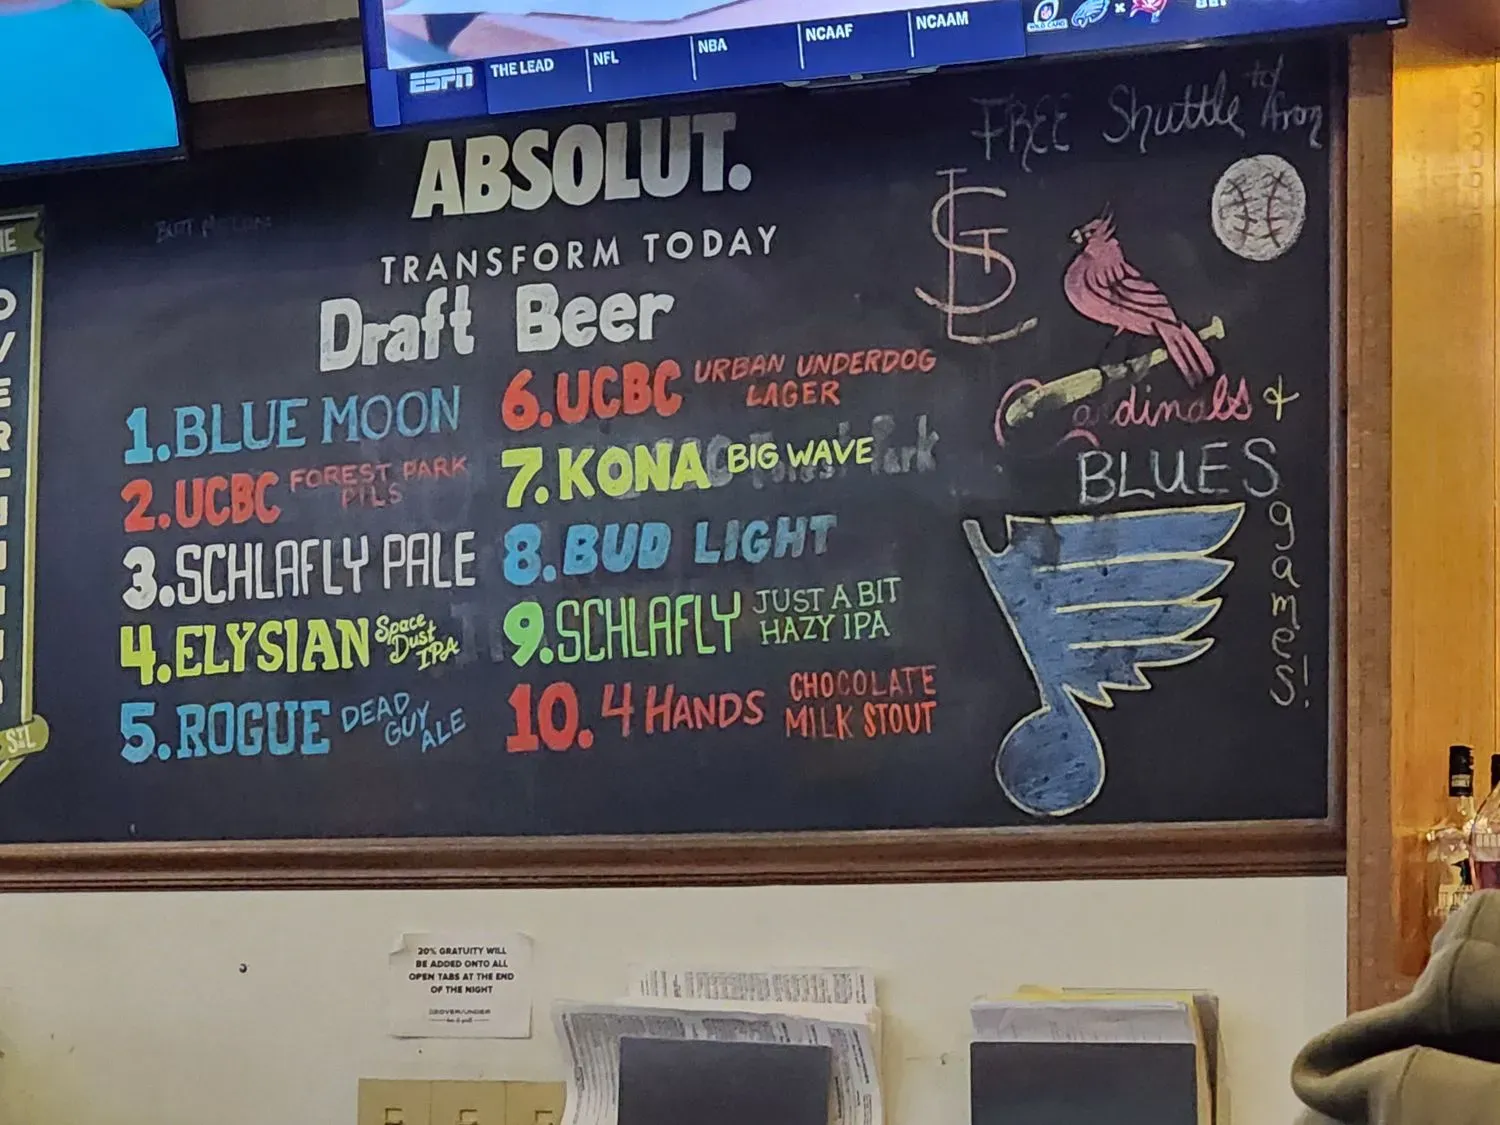 ESPN
THE LEAD
NFL
NBA
NCAAF
NCAAM
ABSOLUT.
TRANSFORM TODAY
Draft Beer
1. BLUE MOON
2. UCBC FOREST PARK
PILS
3. SCHLAFLY PALE
4. ELYSIAN Space
Dust
IPA
5. ROGUE DEAD
GUY
ALE
6. UCBC URBAN UNDERDOG
LAGER
7. KONA BIG WAVE
Park
8. BUD LIGHT
9. SCHLAFLY JUST A BIT
HAZY IPA
10. 4 HANDS CHOCOLATE
MILK STOUT
FREE Shuttle to/
from
STL
Cardinals &
BLUES
games!
STL
20% GRATUITY WILL
BE ADDED ONTO ALL
OPEN TABS AT THE END
OF THE NIGHT
OVER/UNDER